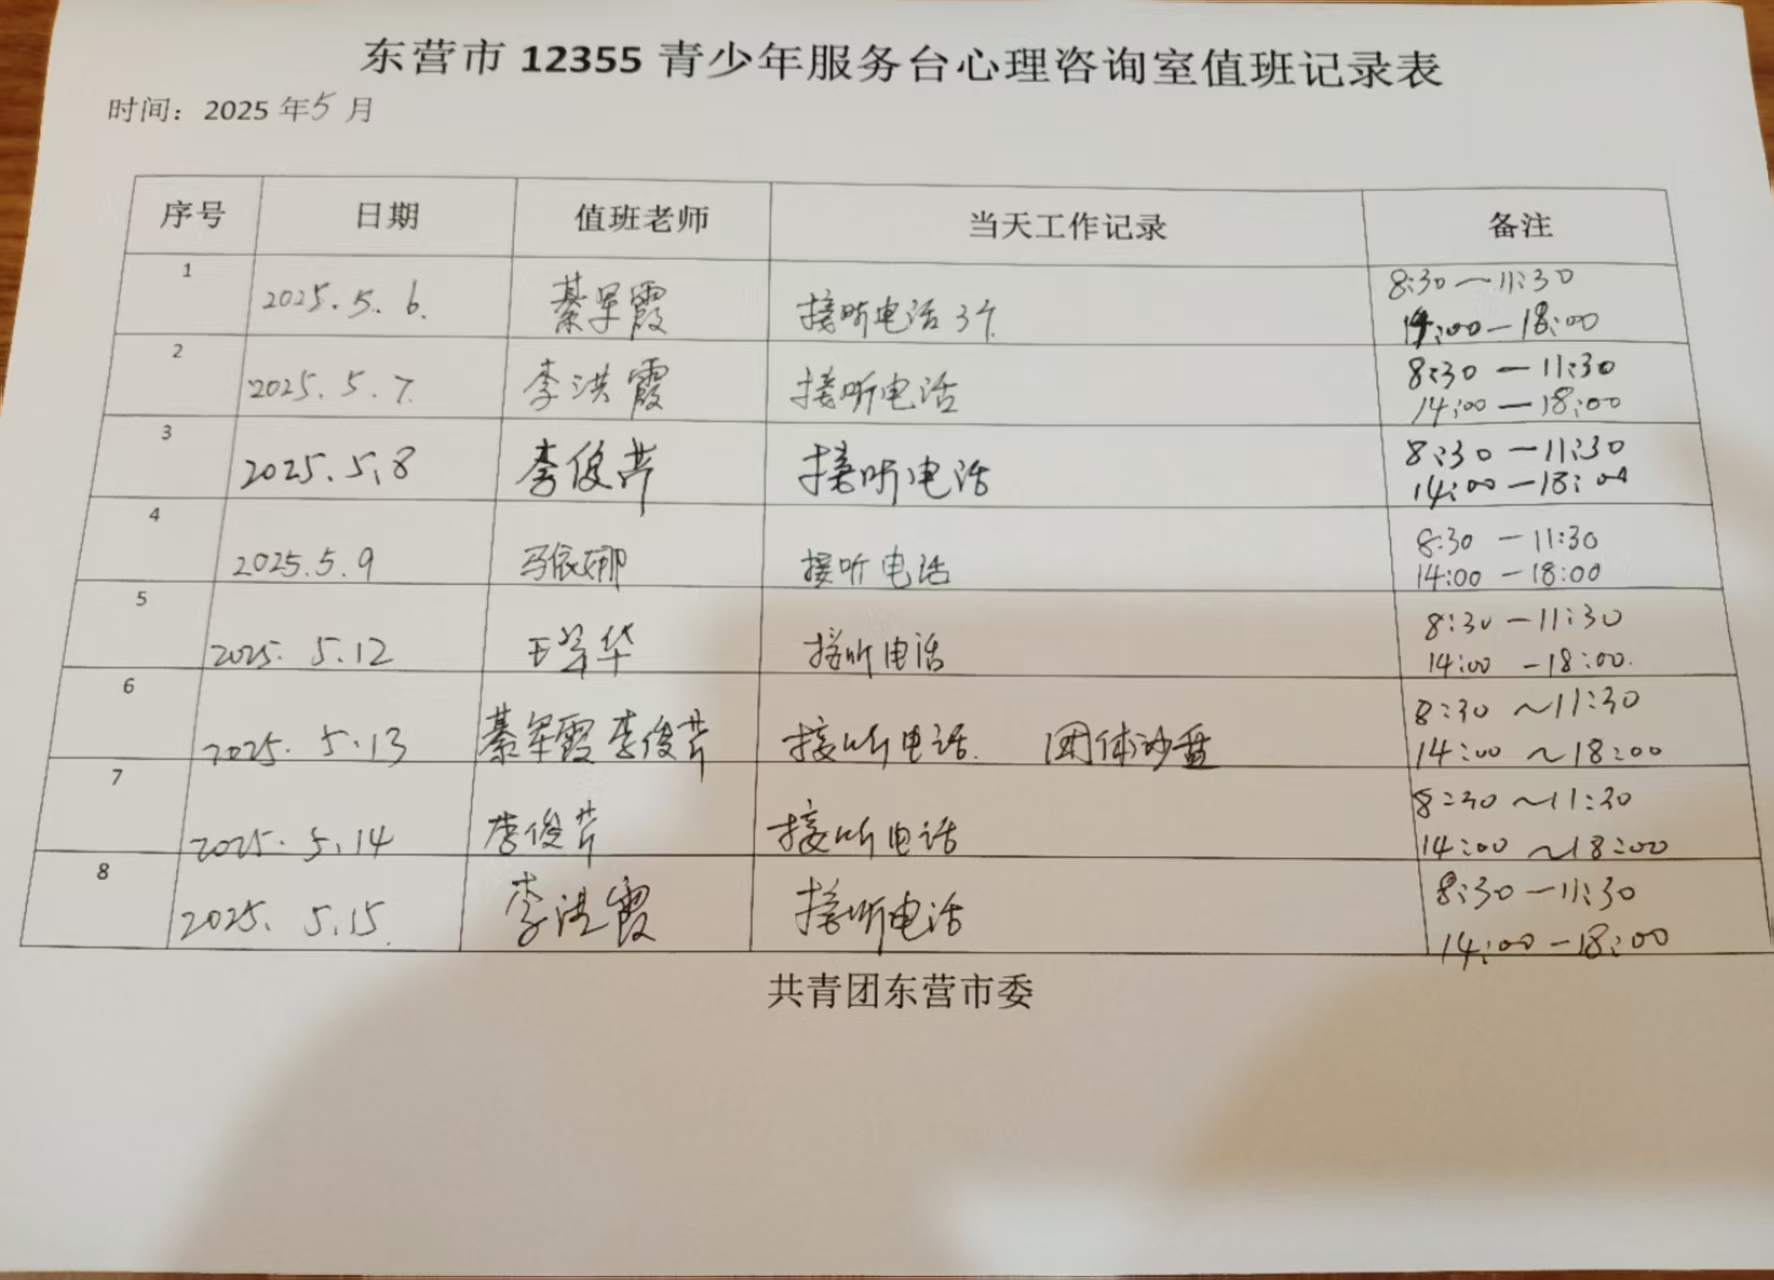 东营市 12355 青少年服务台心理咨询室值班记录表
时间：2025 年 5 月
序号 日期 值班老师 当天工作记录 备注
1 2025.5.6. 綦军霞 接听电话3个 8:30—11:30
14:00—18:00
2 2025.5.7. 李洪霞 接听电话 8:30—11:30
14:00—18:00
3 2025.5.8 李俊芹 接听电话 8:30—11:30
14:00—18:00
4 2025.5.9 马依娜 接听电话 8:30—11:30
14:00—18:00
5 2025.5.12 王 华 接听电话 8:30—11:30
14:00—18:00.
6 2025.5.13 綦军霞 李俊芹 接听电话. 团体沙盘 8:30～11:30
14:00～18:00
7 2025.5.14 李俊芹 接听电话 8:30～11:30
14:00～18:00
8 2025.5.15. 李洪霞 接听电话 8:30—11:30
14:00—18:00
共青团东营市委